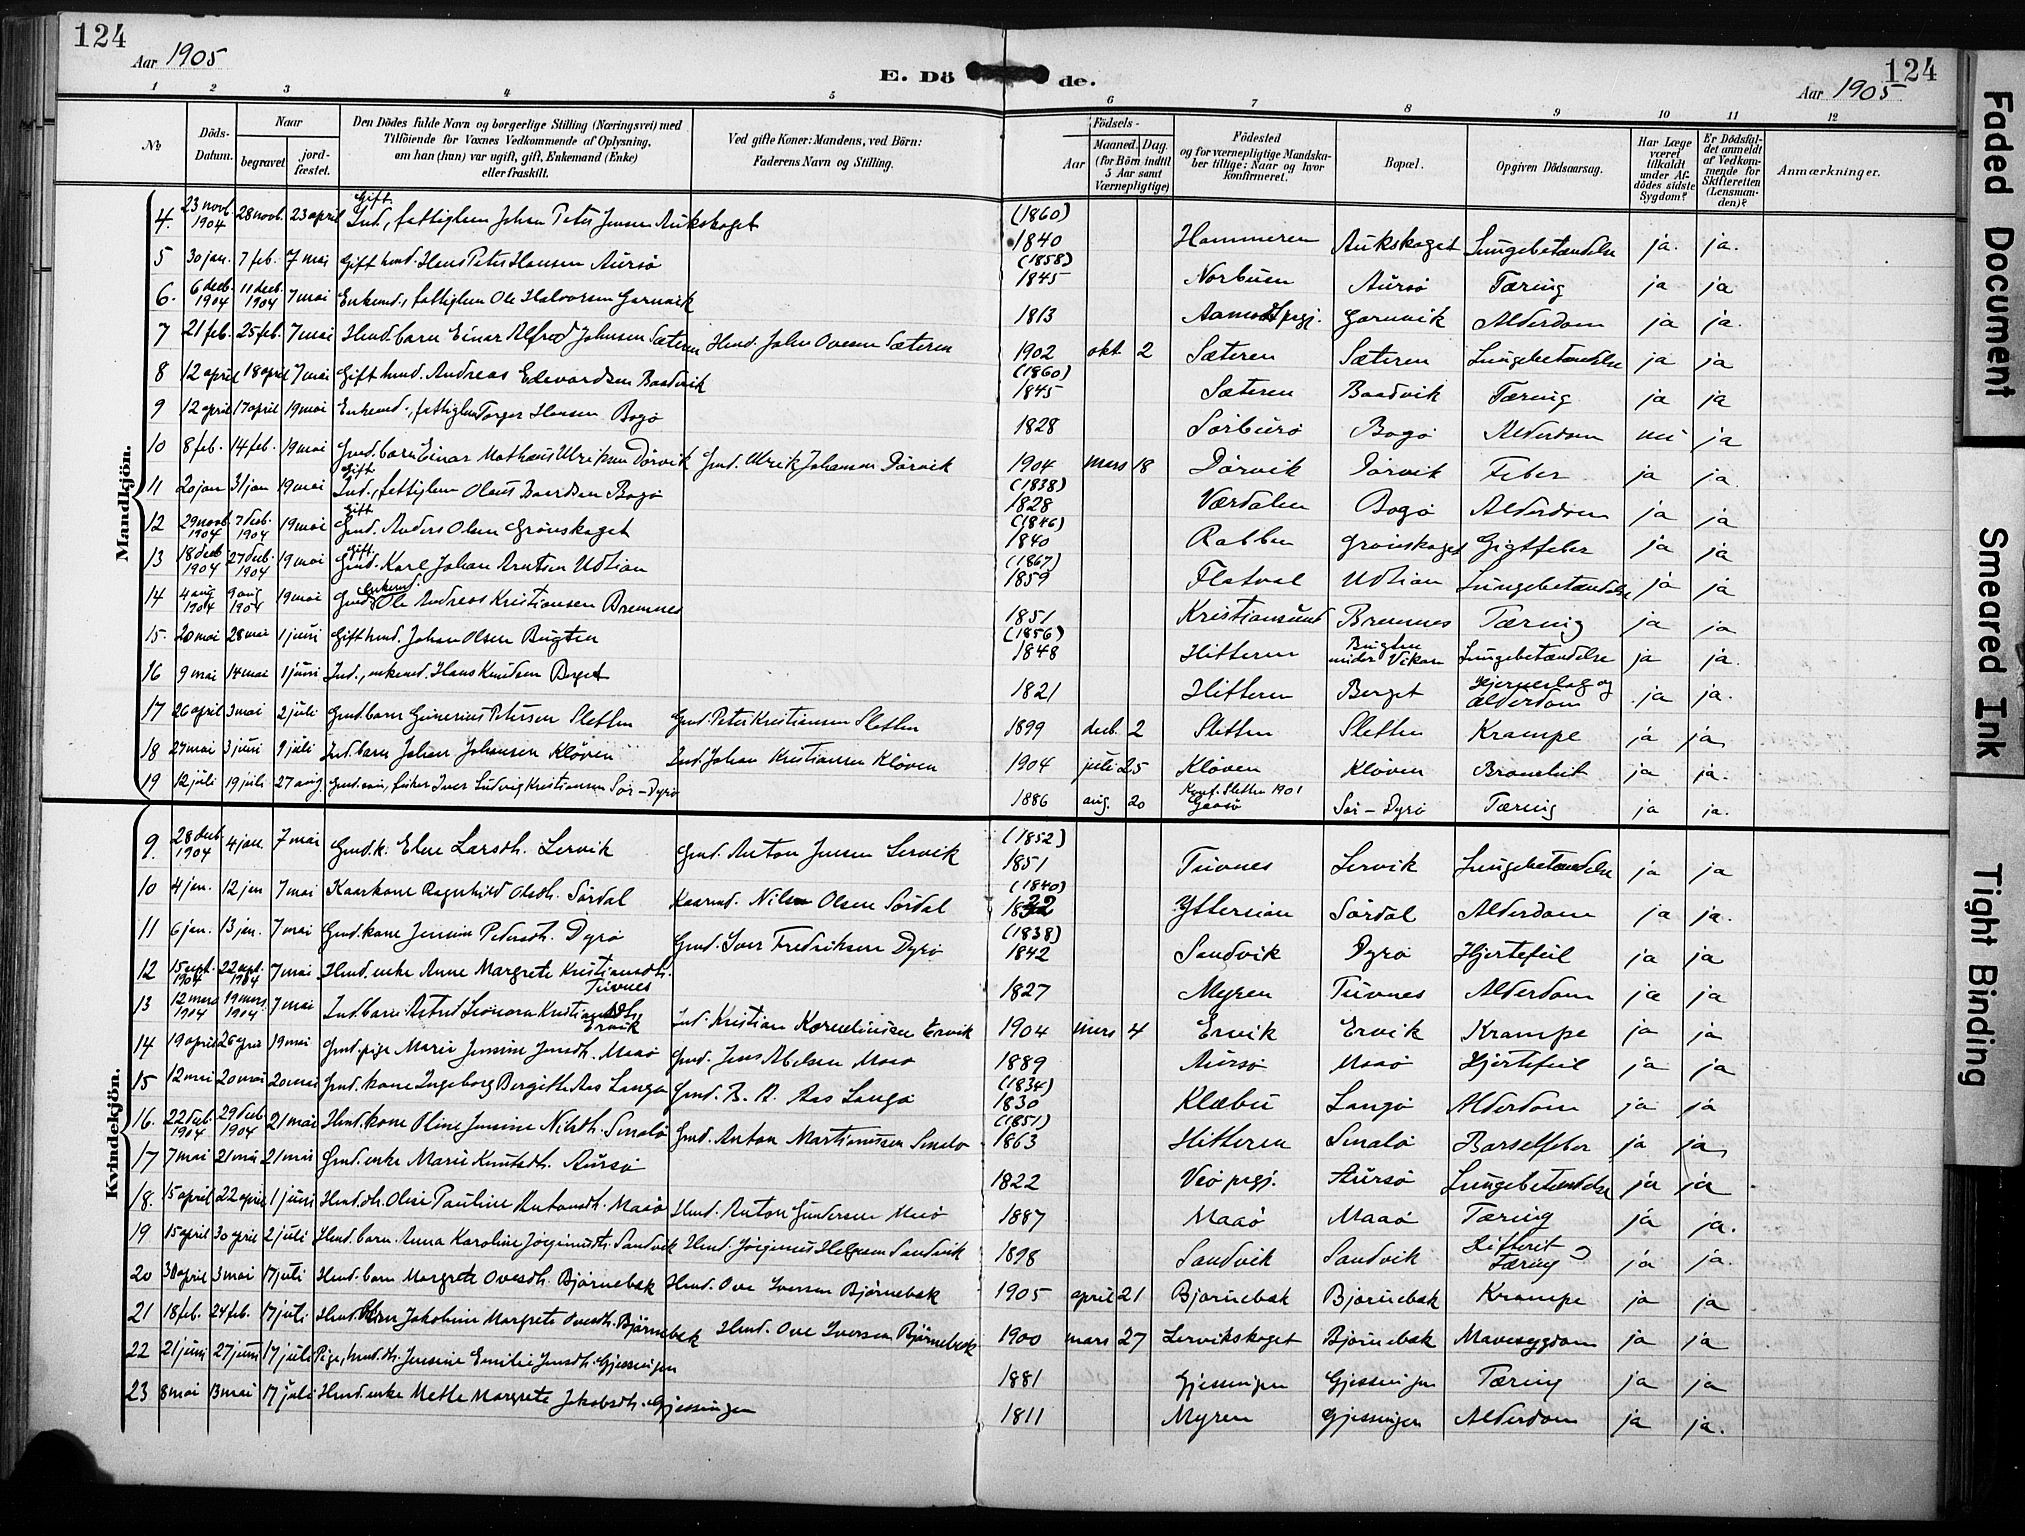 124
Aar 1905
E. Dö de.
124
Aar 1905
1 2 3 4 5 6 7 8 9 10 11 12
No
Döds-Datum.
Naar
begravet
jordfæstet.
Den Dödes fulde Navn og borgerlige Stilling (Næringsvei) med Tilföiende for Voxnes Vedkommende af Oplysning, om han (hun) var ugift, gift, Enkemand (Enke) eller fraskilt.
Ved gifte Koner: Mandens, ved Börn: Faderens Navn og Stilling.
Födsels-
Aar
Maaned. Dag.
(for Börn indtil 5 Aar samt Værnepligtige)
Födested og for værnepligtige Mandskaber tillige: Naar og hvor konfirmeret.
Bopæl.
Opgiven Dödsaarsag.
Har Læge været tilkaldt under Afdödes sidste Sygdom?
Er Dödsfaldet anmeldt af Vedkommende for Skifteretten (Lensmanden)?
Anmærkninger.
Mandkjön.
4. 23 novb. 1904 28 novb. 23 april Gift Ind., fattiglem Johan Peter Jensen Aukskaget (1860) 1840 Hammeren Aukskaget Lungebetændelse ja. ja.
5 30 jan. 7 feb. 7 mai Gift husd. Hans Peter Hansen Aursø (1858) 1845 Norbuen Aursø Tæring ja ja
6. 6 decb. 1904 11 decb. 1904 7 mai Enkemd., fattiglem Ole Halvorsen Garnvik 1813 Aamodt prgj. Garnvik Alderdom ja ja.
7 21 feb. 25 feb. 7 mai Husd. barn Einar Alfred Johnsen Sæteren Husd. John Ovesen Sæteren 1902 okt. 2 Sæteren Sæteren Lungebetændelse ja ja
8 12 april 18 april 7 mai Gift husd. Andreas Edvardsen Baadvik (1860) 1845 Sæteren Baadvik Tæring ja ja
9 12 april 17 april 19 mai Enkemd., fattiglem Torger Hansen Bogø 1828 Sørburø Bogø Alderdom nei ja
10 8 feb. 14 feb. 19 mai Gmd. barn Einar Mathæus Ulriksen Dørvik Gmd. Ulrik Johansen Dørvik 1904 mars 18 Dørvik Dørvik Feber ja ja.
11 20 jan 31 jan 19 mai Gift Ind., fattiglem Olaus Baardsen Bogø (1838) 1828 Værdalen Bogø Alderdom ja ja
12 29 novb. 1904 7 decb. 1904 19 mai Gift Gmd. Anders Olsen Grønskaget (1846) 1840 Rabben Grønskaget Gigtfeber ja ja
13 18 decb 1904 27 decb. 1904 19 mai Gift Gmd. Karl Johan Arntsen Udtian (1867) 1859 Flatval Udtian Lungebetændelse ja ja
14 4 aug 1904 9 aug 1904 19 mai Gmd. enkemd. Ole Andreas Kristiansen Bremnes 1851 Kristiansund Bremnes Tæring ja ja
15. 20 mai 28 mai 1 juni Gift husd. Johan Olsen Bugten (1856) 1848 Hitteren Bugten under Vikan Lungebetændelse ja ja.
16 9 mai 14 mai 1 juni Ind., enkemd. Hans Knudsen Berget 1821 Hitteren Berget Hjerneslag og Alderdom ja ja.
17 26 april 3 mai 2 juli Gmd. barn Gunerius Petersen Sletten Gmd. Peter Kristiansen Sletten 1899 decb. 2 Sletten Sletten Krampe ja ja
18 27 mai 3 juni 9 juli Ind. barn Johan Johansen Kløven Ind. Johan Kristiansen Kløven 1904 juli 25 Kløven Kløven Bronchit ja ja.
19 12 juli 19 juli 27 aug. Gmd. søn, fisker Iver Ludvig Kristiansen Sør-Dyrø 1886 aug. 20 Konf. Sletten 1901 Gaasø Sør-Dyrø Tæring ja ja.
Kvindekjön.
9. 28 decb. 1904 4 jan. 7 mai Gmd. k. Elen Larsdh. Lervik Gmd. Anton Jensen Lervik (1852) 1851 Tuvnes Lervik Lungebetændelse ja ja
10 4 jan. 12 jan 7 mai Kaarkone Ragnhild Olsdh. Sørdal Kaarmd. Nils Olsen Sørdal (1840) Yttersian Sørdal Alderdom ja ja.
11 6 jan. 13 jan. 7 mai Gmd. kone Jensine Pedersdh. Dyrø Gmd. Iver Fredriksen Dyrø (1838) 1842 Sandvik Dyrø Hjertefeil ja ja
12 15 sept. 1904 22 sept. 1904 7 mai Husd. enke Anne Margrete Kristiansdh. Tuvnes 1827 Myren Tuvnes Alderdom ja ja
13 12 mars 1904 19 mars 1904 7 mai Ind. barn Astrid Leonora Kristiansdh. Ervik Ind. Kristian Kornelinsen Ervik 1904 mars 4 Ervik Ervik Krampe ja ja
14 19 april 26 april 19 mai Gmd. pige Marie Jensine Jensdh. Maaø Gmd. Jens Abelsen Maaø 1889 Aursø Maaø Hjertefeil ja ja
15 12 mai 20 mai 20 mai Gmd. kone Ingeborg Bergithe Aas Langø Gmd. B. A. Aas Langø (1834) 1830 Klæbu Langø Alderdom ja ja
16. 22 decb. 1904 29 decb 1904 21 mai Husd. kone Oline Jensine Nilsdh. Smalø Gmd. Anton Martinussen Smalø (1851) 1863 Hitteren Smalø Barselfeber ja ja
17 7 mai 21 mai 21 mai Gmd. enke Marie Knutsdh. Aursø 1822 Veø prgj. Aursø Lungebetændelse ja ja
18. 15 april 22 april 1 juni Husd. dh. Olise Pauline Antonsdh. Maaø Husd. Anton Gundersen Maaø 1887 Maaø Maaø Tæring ja ja.
19 15 april 30 april 2 juli Husd. barn Anna Karoline Jørginusdh. Sandvik Husd. Jørginus Helgesen Sandvik 1898 Sandvik Sandvik Difterit Tæring ja ja.
20 30 april 3 mai 17 juli Husd. barn Margrete Ovesdh. Bjørnebak Husd. Ove Iversen Bjørnebak 1905 april 21 Bjørnebak Bjørnebak Krampe ja ja
21 18 feb. 24 feb. 17 juli Husd. barn Jakobine Margrete Ovesdh. Bjørnebak Husd. Ove Iversen Bjørnebak 1900 mars 27 Lervikskaget Bjørnebak Mavesygdom ja ja
22 21 juni 27 juni 17 juli Pige, husd. dh. Jensine Emilie Jensdh. Gjessingen 1881 Gjessingen Gjessingen Tæring ja ja
23 8 mai 13 mai 17 juli Husd. enke Mette Margrete Jakobsdh. Gjessingen 1811 Myren Gjessingen Alderdom ja ja.
Faded Document
Smeared Ink
Tight Binding